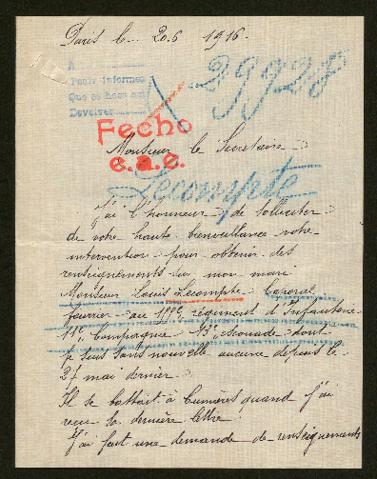 Paris le 20.6 1916.
A
Para informes
Que se hace en
Devolver
29928
Fecho
e. a. e.
Monsieur le Secretaire
Lecompte
J'ai l'honneur de solliciter
de votre haute bienveillance votre
intervention pour obtenir des
renseignements sur mon mari
Monsieur Louis Lecompte Caporal
fourrier au régiment d'Infanterie
11e Compagnie 13e escouade dont
je suis sans nouvelle aucune depuis le
27 mai dernier.
Il se battait à Cumières quand j'ai
reçu sa dernière lettre.
J'ai fait une demande de renseignements